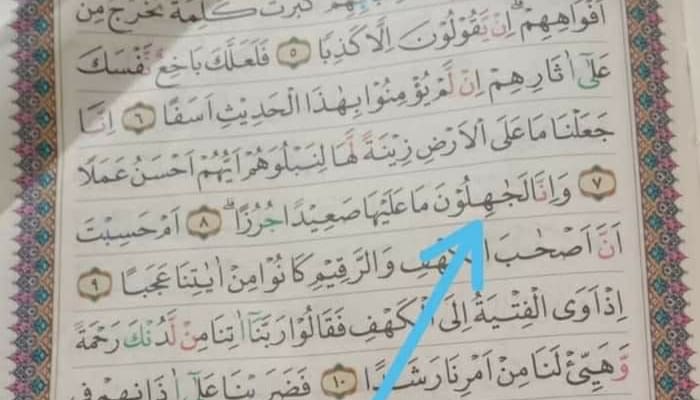 كَبُرَتْ كَلِمَةً تَخْرُجُ مِنْ
اَفْوَاهِهِمْۗ اِنْ يَّقُوْلُوْنَ اِلَّا كَذِبًا ٥ فَلَعَلَّكَ بَاخِعٌ نَّفْسَكَ
عَلٰٓى اٰثَارِهِمْ اِنْ لَّمْ يُؤْمِنُوْا بِهٰذَا الْحَدِيْثِ اَسَفًا ٦ اِنَّا
جَعَلْنَا مَا عَلَى الْاَرْضِ زِيْنَةً لَّهَا لِنَبْلُوَهُمْ اَيُّهُمْ اَحْسَنُ عَمَلًا
٧ وَاِنَّا لَجٰهِلُوْنَ مَا عَلَيْهَا صَعِيْدًا جُرُزًاۗ ٨ اَمْ حَسِبْتَ
اَنَّ اَصْحٰبَ الْكَهْفِ وَالرَّقِيْمِ كَانُوْا مِنْ اٰيٰتِنَا عَجَبًا ٩
اِذْ اَوَى الْفِتْيَةُ اِلَى الْكَهْفِ فَقَالُوْا رَبَّنَآ اٰتِنَا مِنْ لَّدُنْكَ رَحْمَةً
وَّهَيِّئْ لَنَا مِنْ اَمْرِنَا رَشَدًا ١٠ فَضَرَبْنَا عَلٰٓى اٰذَانِهِمْ فِى